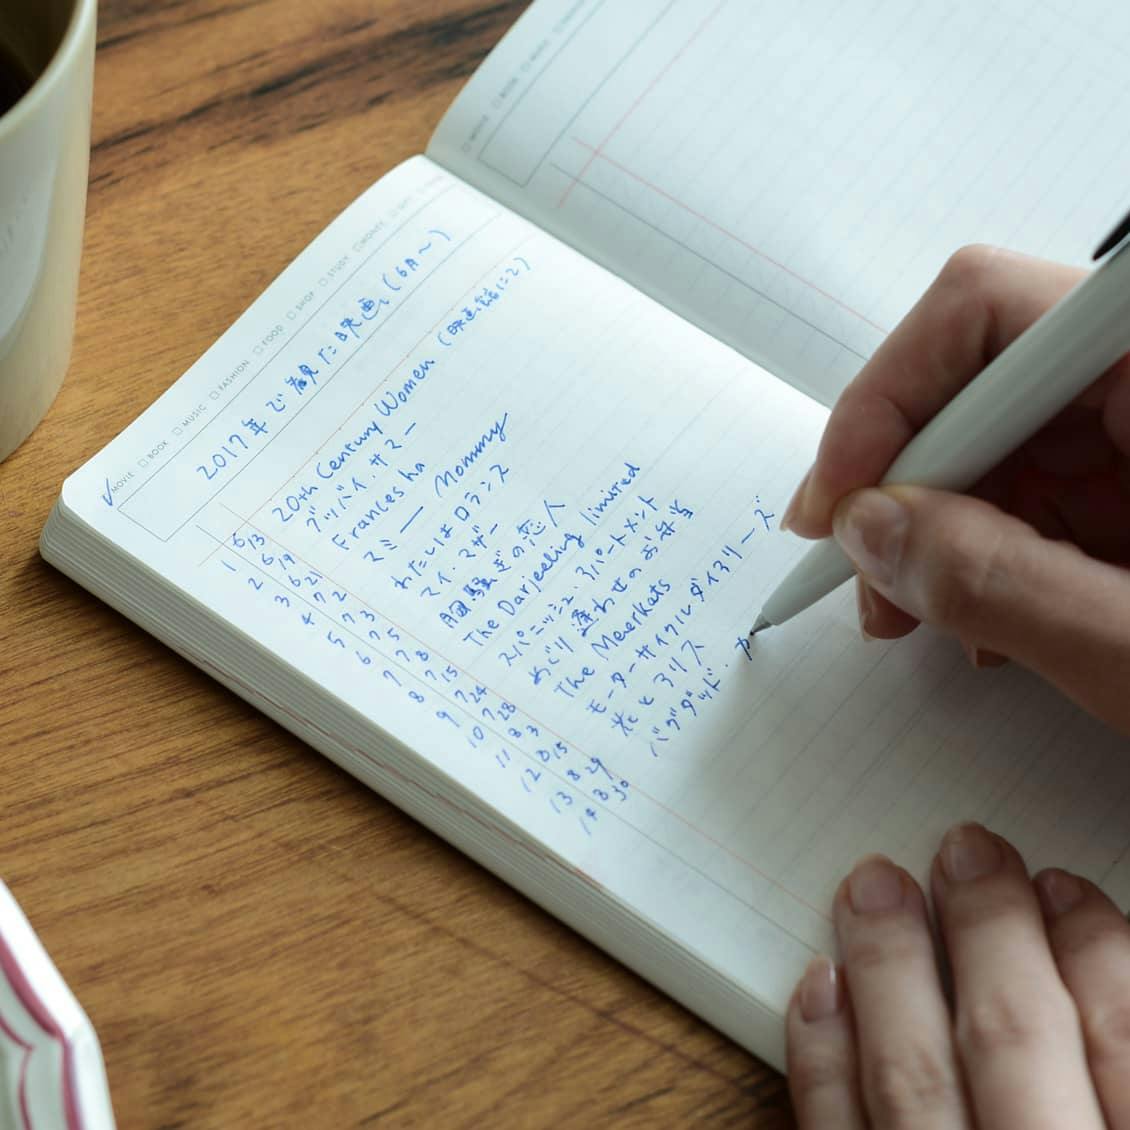 ✓MOVIE □BOOK □MUSIC □FASHION □FOOD □SHOP □STUDY □MONEY
2017年で観た映画(6月〜)
1 6/13 20th Century Women (映画館にて)
2 6/19 グッバイ、サマー
3 6/21 Frances ha
4 7/2 マミー Mommy
5 7/3 わたしはロランス
6 7/5 マイ・マザー
7 7/8 胸騒ぎの恋人
8 7/15 The Darjeeling limited
9 7/24 スパニッシュ・アパートメント
10 7/28 めぐり逢わせのお弁当
11 8/3 The Meerkats
12 8/15 モーターサイクルダイアリーズ
13 8/29 花とアリス
14 8/30 バグダッド・カ